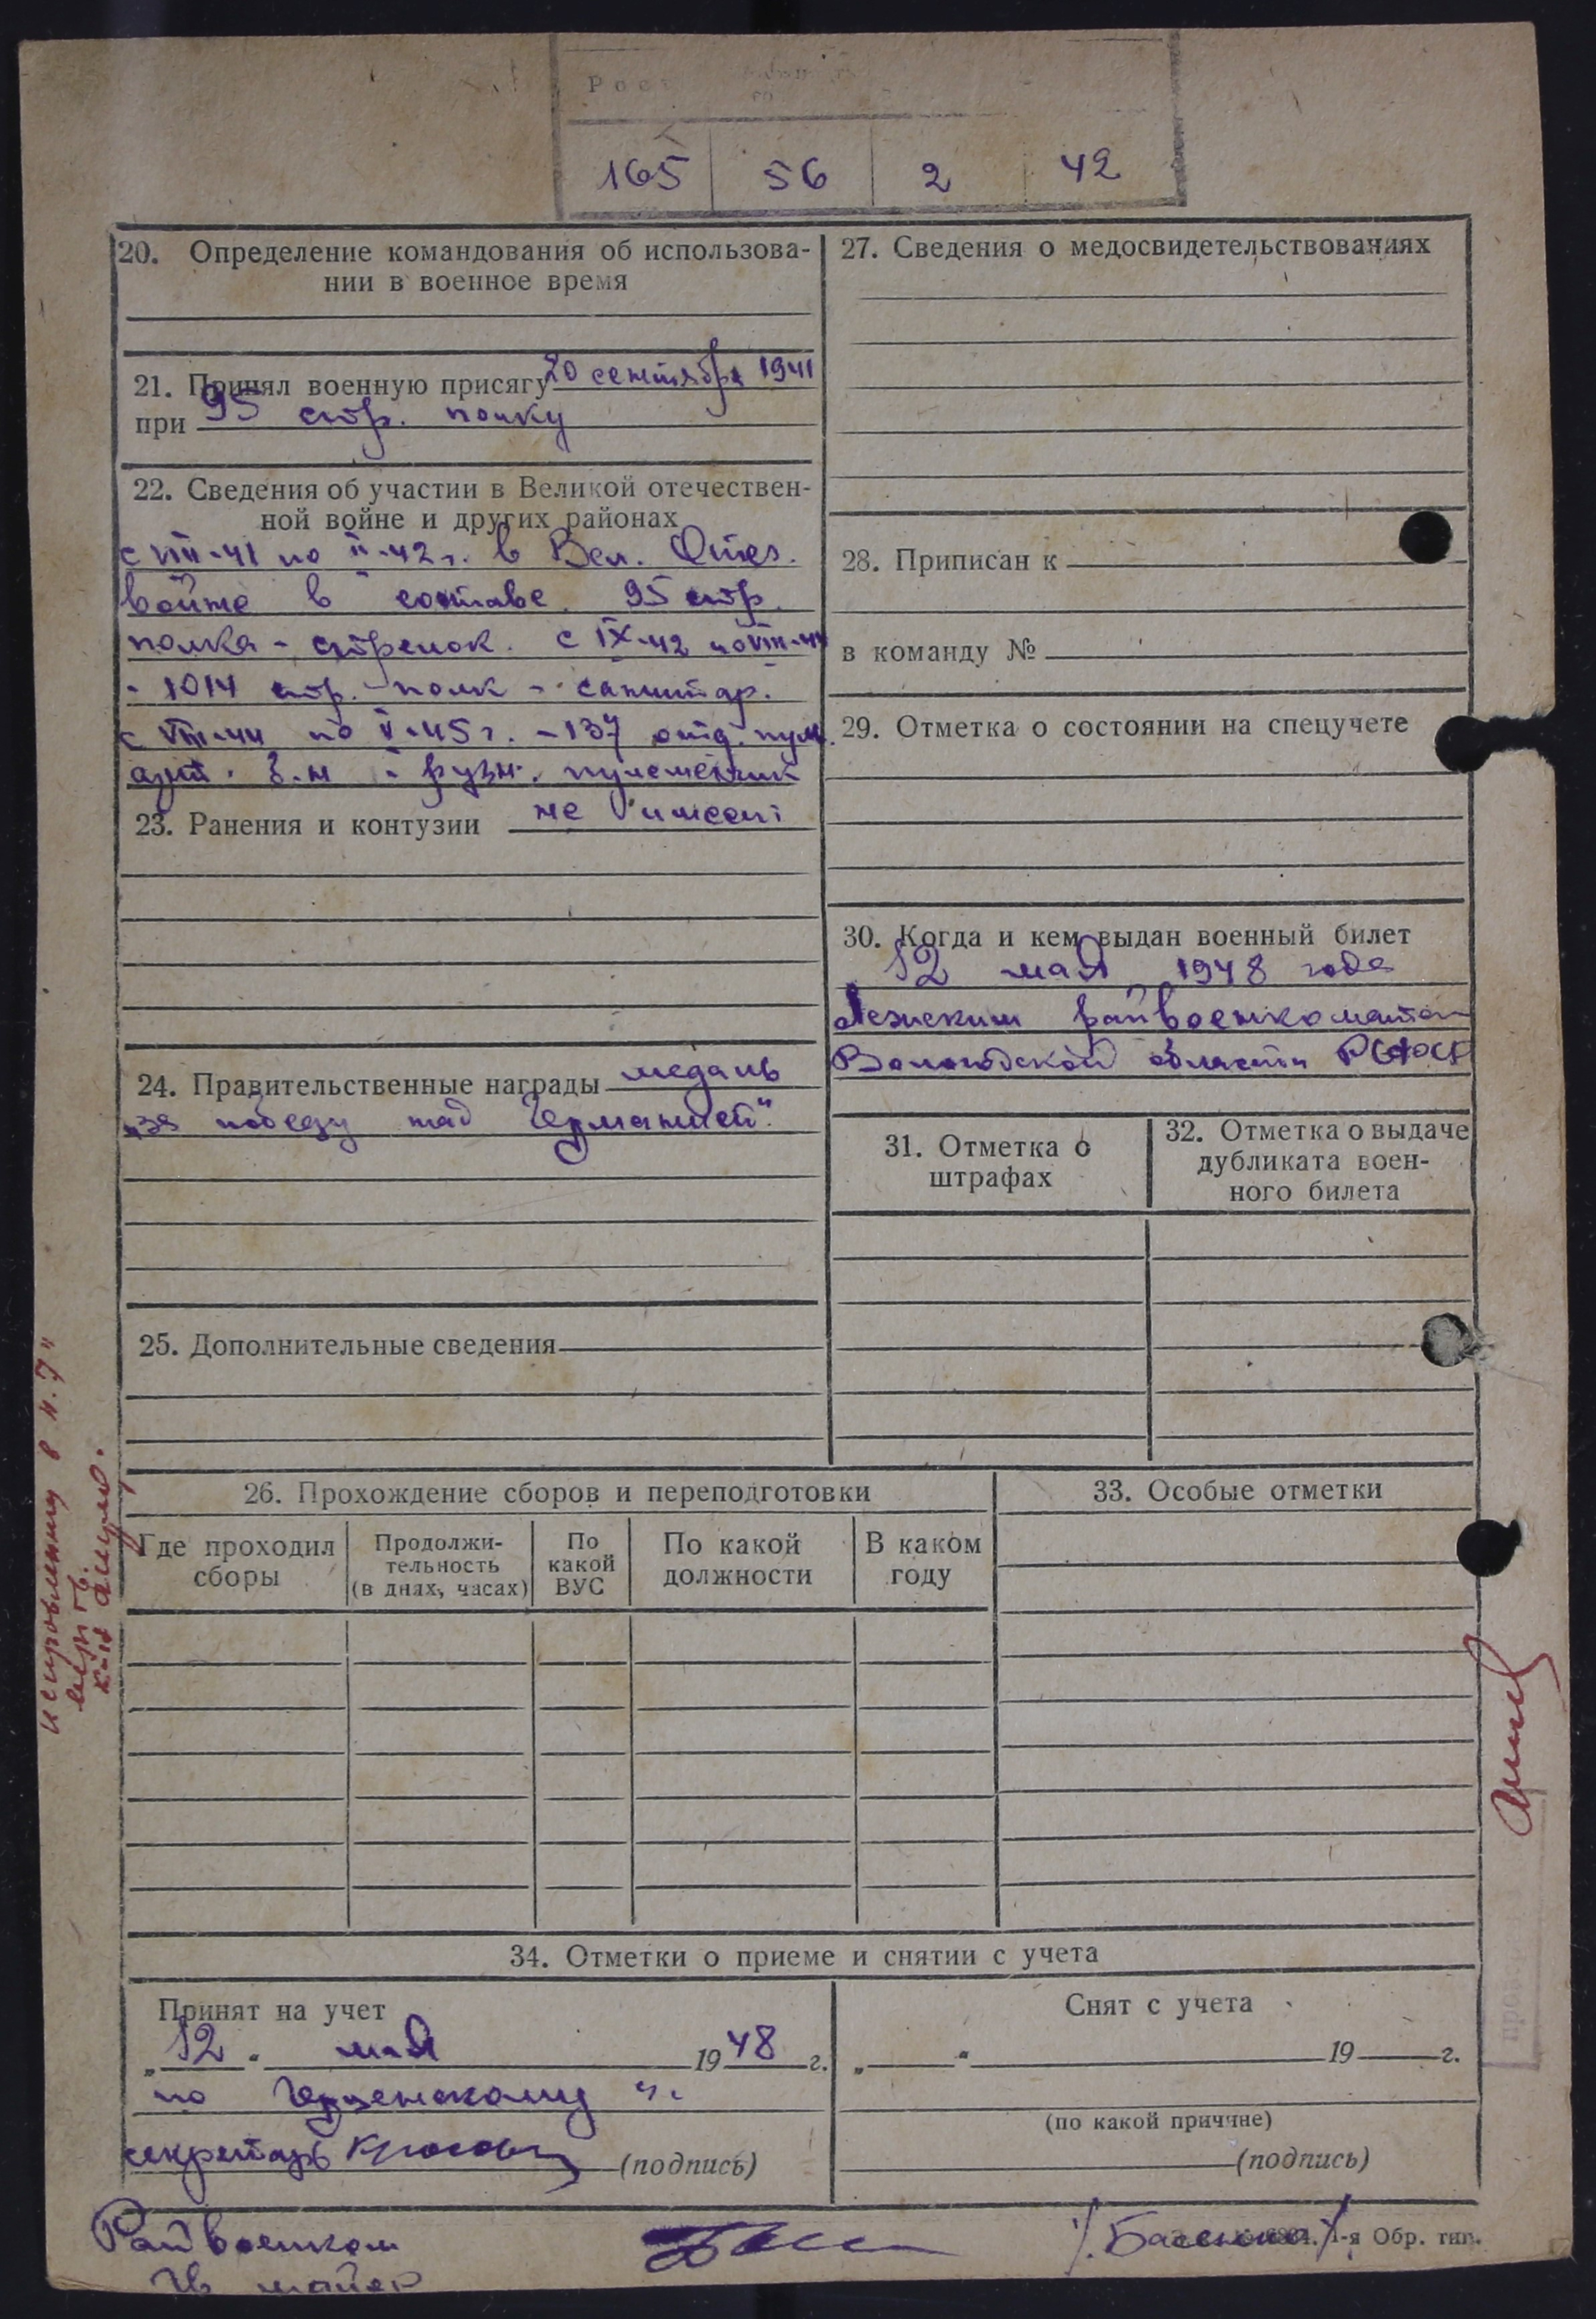 165 56 2 42
20. Определение командования об использова-
нии в военное время
21. Принял военную присягу 20 сентября 1941
при 95 стр. полку
22. Сведения об участии в Великой отечествен-
ной войне и других районах
с VIII-41 по II-42 г. в Вел. Отеч.
войне в составе 95 стр.
полка - стрелок. с IX-42 по VIII-44
- 1014 стр. полк - санитар.
с VIII-44 по V-45 г. - 137 отд. пул.
арт. б-н - ручн. пулеметчик
23. Ранения и контузии не имеет
24. Правительственные награды медаль
„за победу над Германией".
25. Дополнительные сведения
26. Прохождение сборов и переподготовки
Где проходил
сборы
Продолжи-
тельность
(в днях, часах)
По
какой
ВУС
По какой
должности
В каком
году
27. Сведения о медосвидетельствованиях
28. Приписан к
в команду №
29. Отметка о состоянии на спецучете
30. Когда и кем выдан военный билет
12 мая 1948 года
Лежским райвоенкоматом
Вологодской области РСФСР
31. Отметка о
штрафах
32. Отметка о выдаче
дубликата воен-
ного билета
33. Особые отметки
34. Отметки о приеме и снятии с учета
Принят на учет
„12" мая 1948 г.
по
секретарь
(подпись)
Снят с учета
„ " 19 г.
(по какой причине)
(подпись)
Райвоенком
майор
1-я Обр. тип.
исправленному в п. 7"
верить.